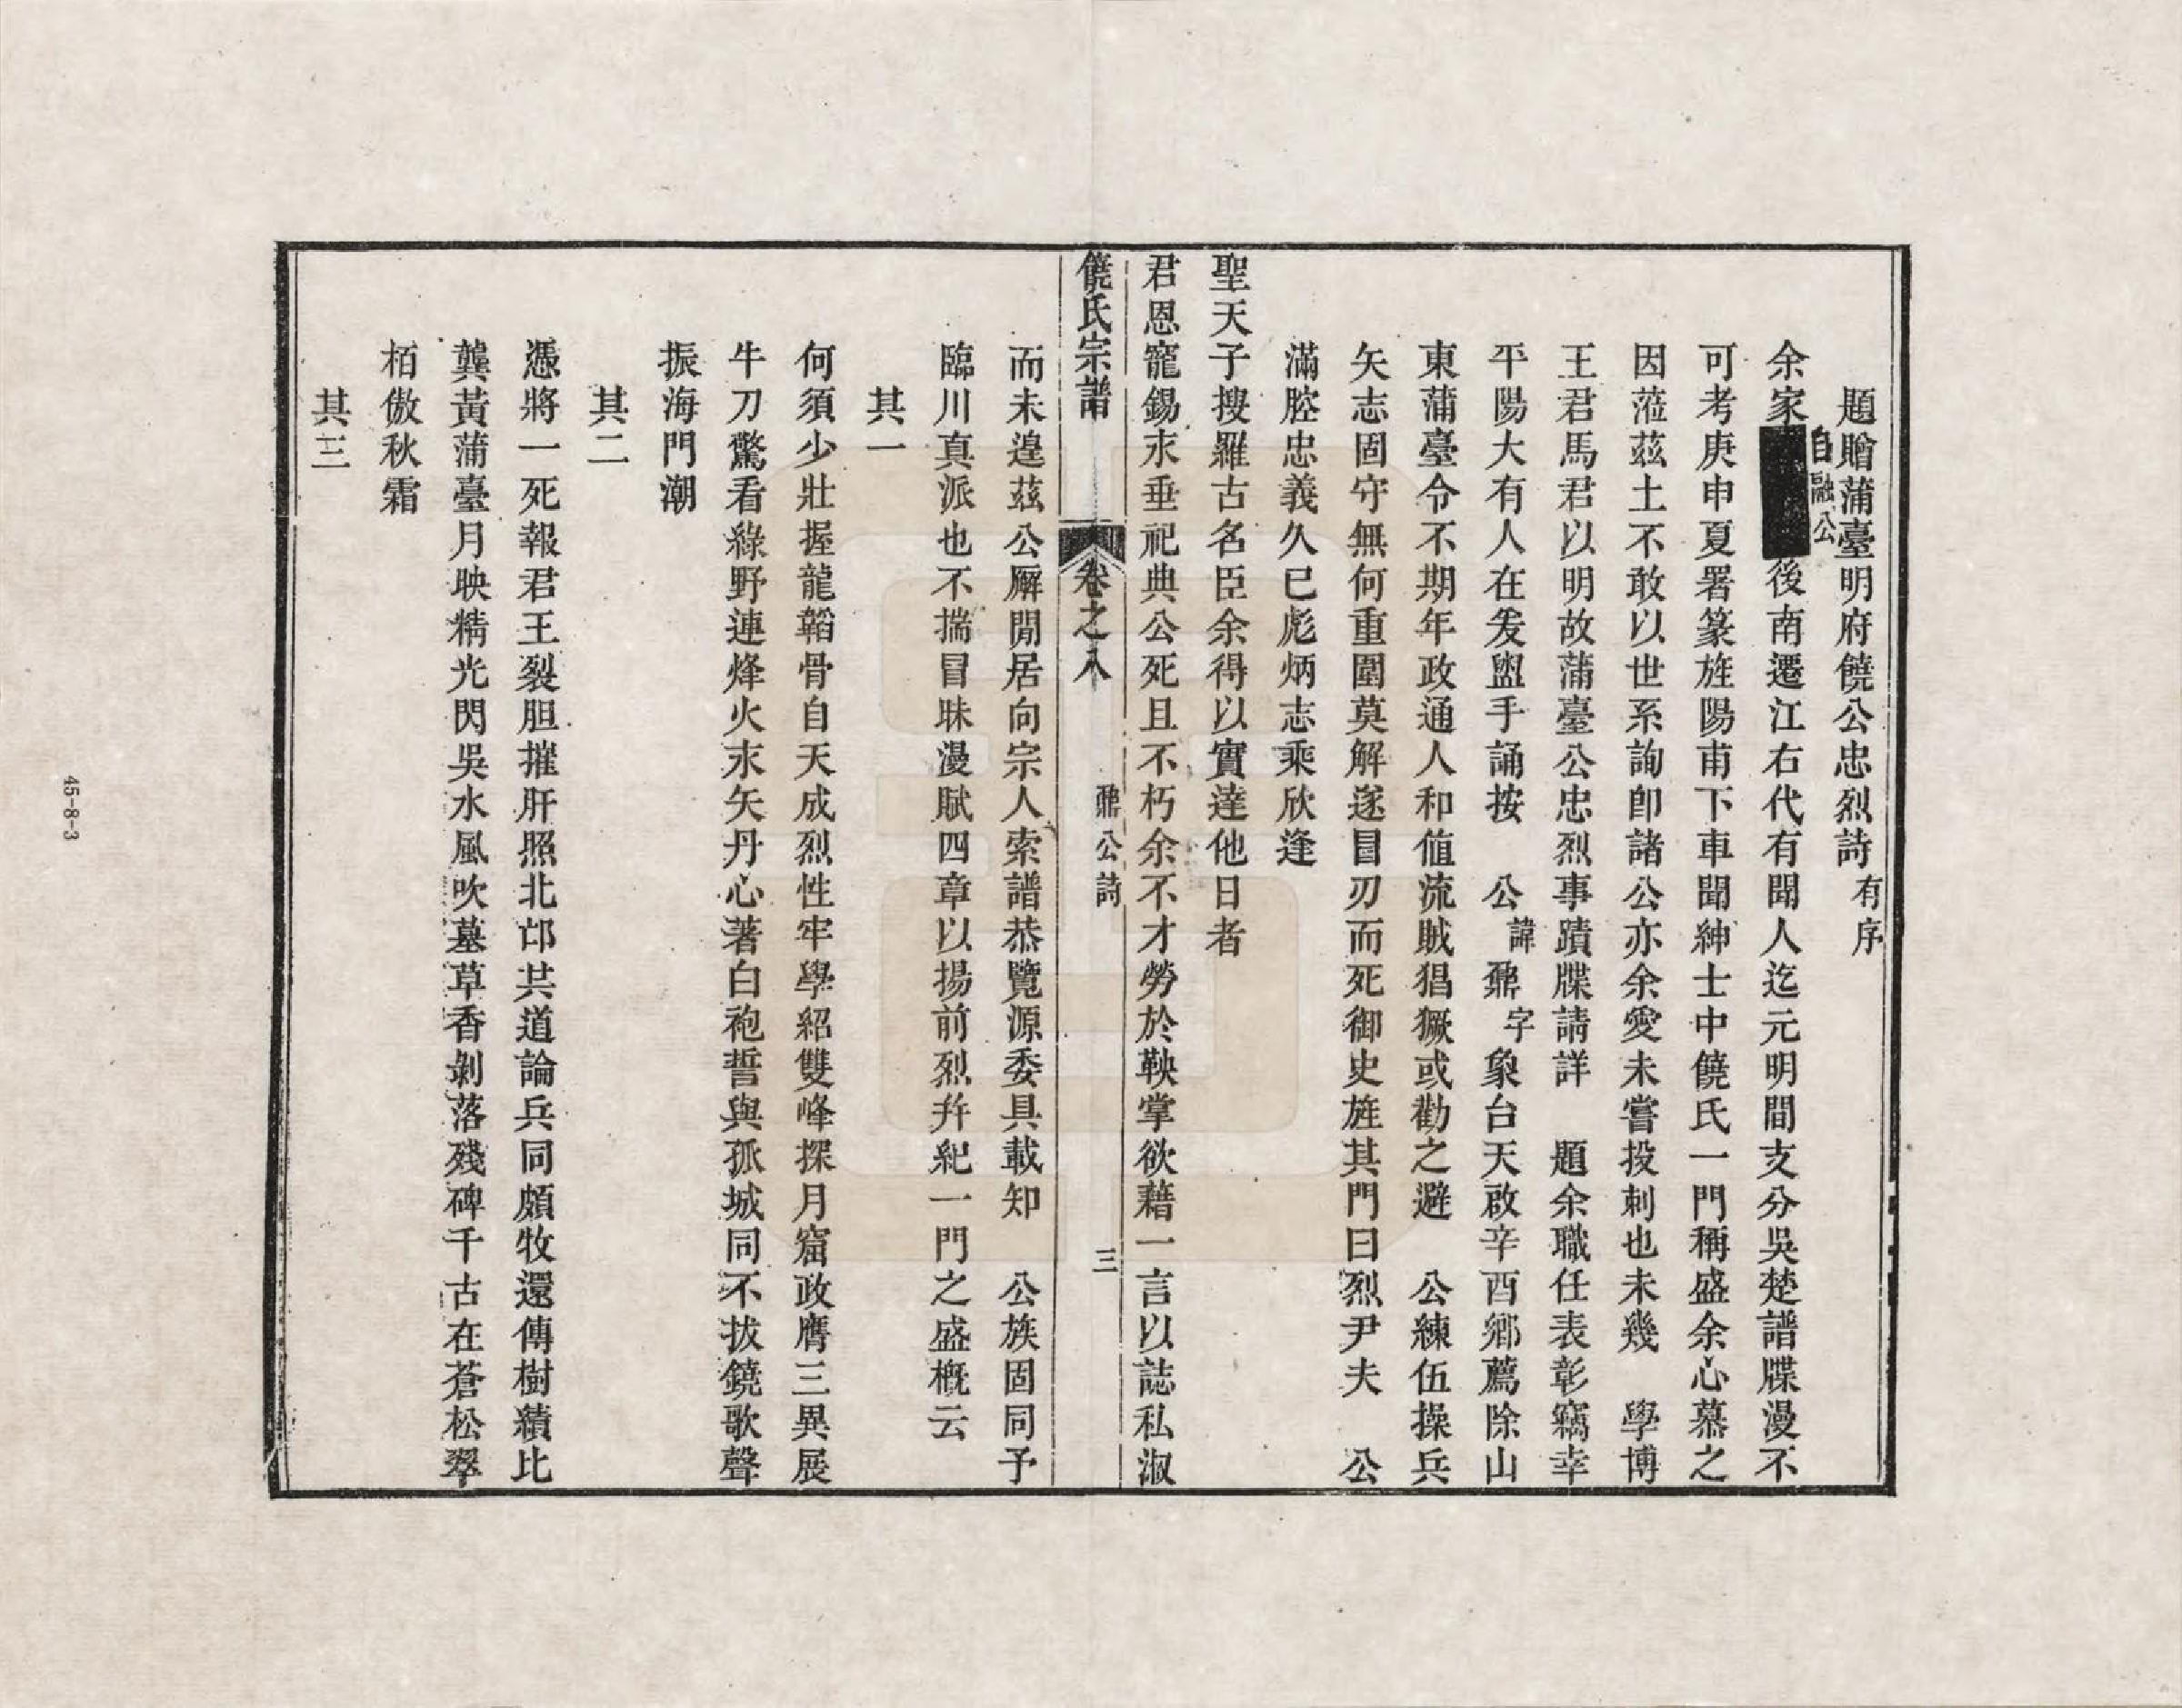 題贈蒲臺明府饒公忠烈詩有序
余家自融公後南遷江右代有聞人迄元明間支分吳楚譜牒漫不
可考庚申夏署篆旌陽甫下車聞紳士中饒氏一門稱盛余心慕之
因蒞茲土不敢以世系詢卽諸公亦余愛未嘗投刺也未幾　學博
王君馬君以明故蒲臺公忠烈事蹟牒請詳　題余職任表彰竊幸
平陽大有人在爰盥手誦按　公諱鼐字象台天啟辛酉鄉薦除山
東蒲臺令不期年政通人和值流賊猖獗或勸之避　公練伍操兵
矢志固守無何重圍莫解遂冒刃而死御史旌其門曰烈尹夫　公
滿腔忠義久已彪炳志乘欣逢
聖天子搜羅古名臣余得以實達他日者
君恩寵錫永垂祀典公死且不朽余不才勞於鞅掌欲藉一言以誌私淑
饒氏宗譜　卷之八　鼐公詩　三
而未遑茲公廨閒居向宗人索譜恭覽源委具載知　公族固同予
臨川真派也不揣冒昧漫賦四章以揚前烈幷紀一門之盛概云
其一
何須少壯握龍韜骨自天成烈性牢學紹雙峰探月窟政膺三異展
牛刀驚看綠野連烽火永矢丹心著白袍誓與孤城同不拔鐃歌聲
振海門潮
其二
憑將一死報君王裂胆摧肝照北邙共道論兵同頗牧還傳樹績比
龔黃蒲臺月映精光閃吳水風吹墓草香剝落殘碑千古在蒼松翠
栢傲秋霜
其三
45-8-3